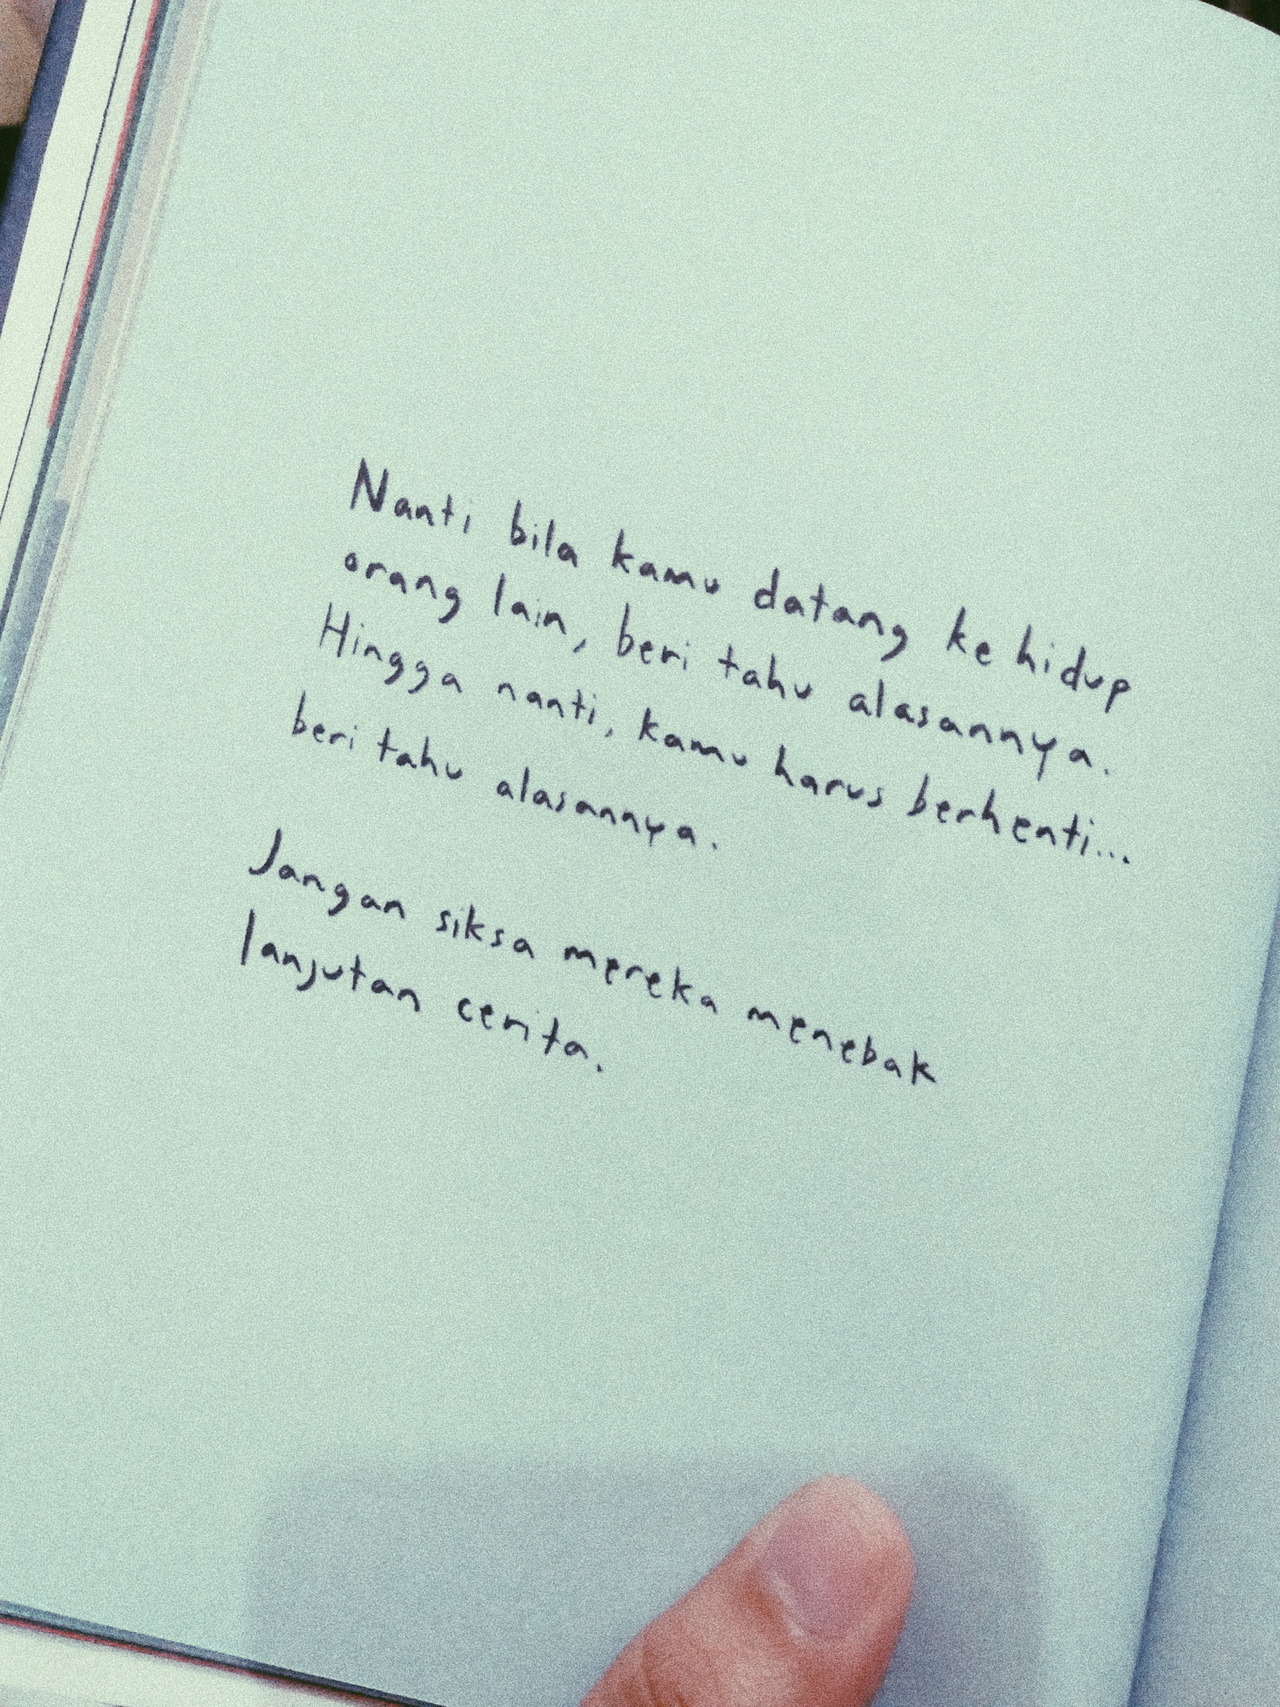 Nanti bila kamu datang ke hidup
orang lain, beri tahu alasannya.
Hingga nanti, kamu harus berhenti...
beri tahu alasannya.
Jangan siksa mereka menebak
lanjutan cerita.